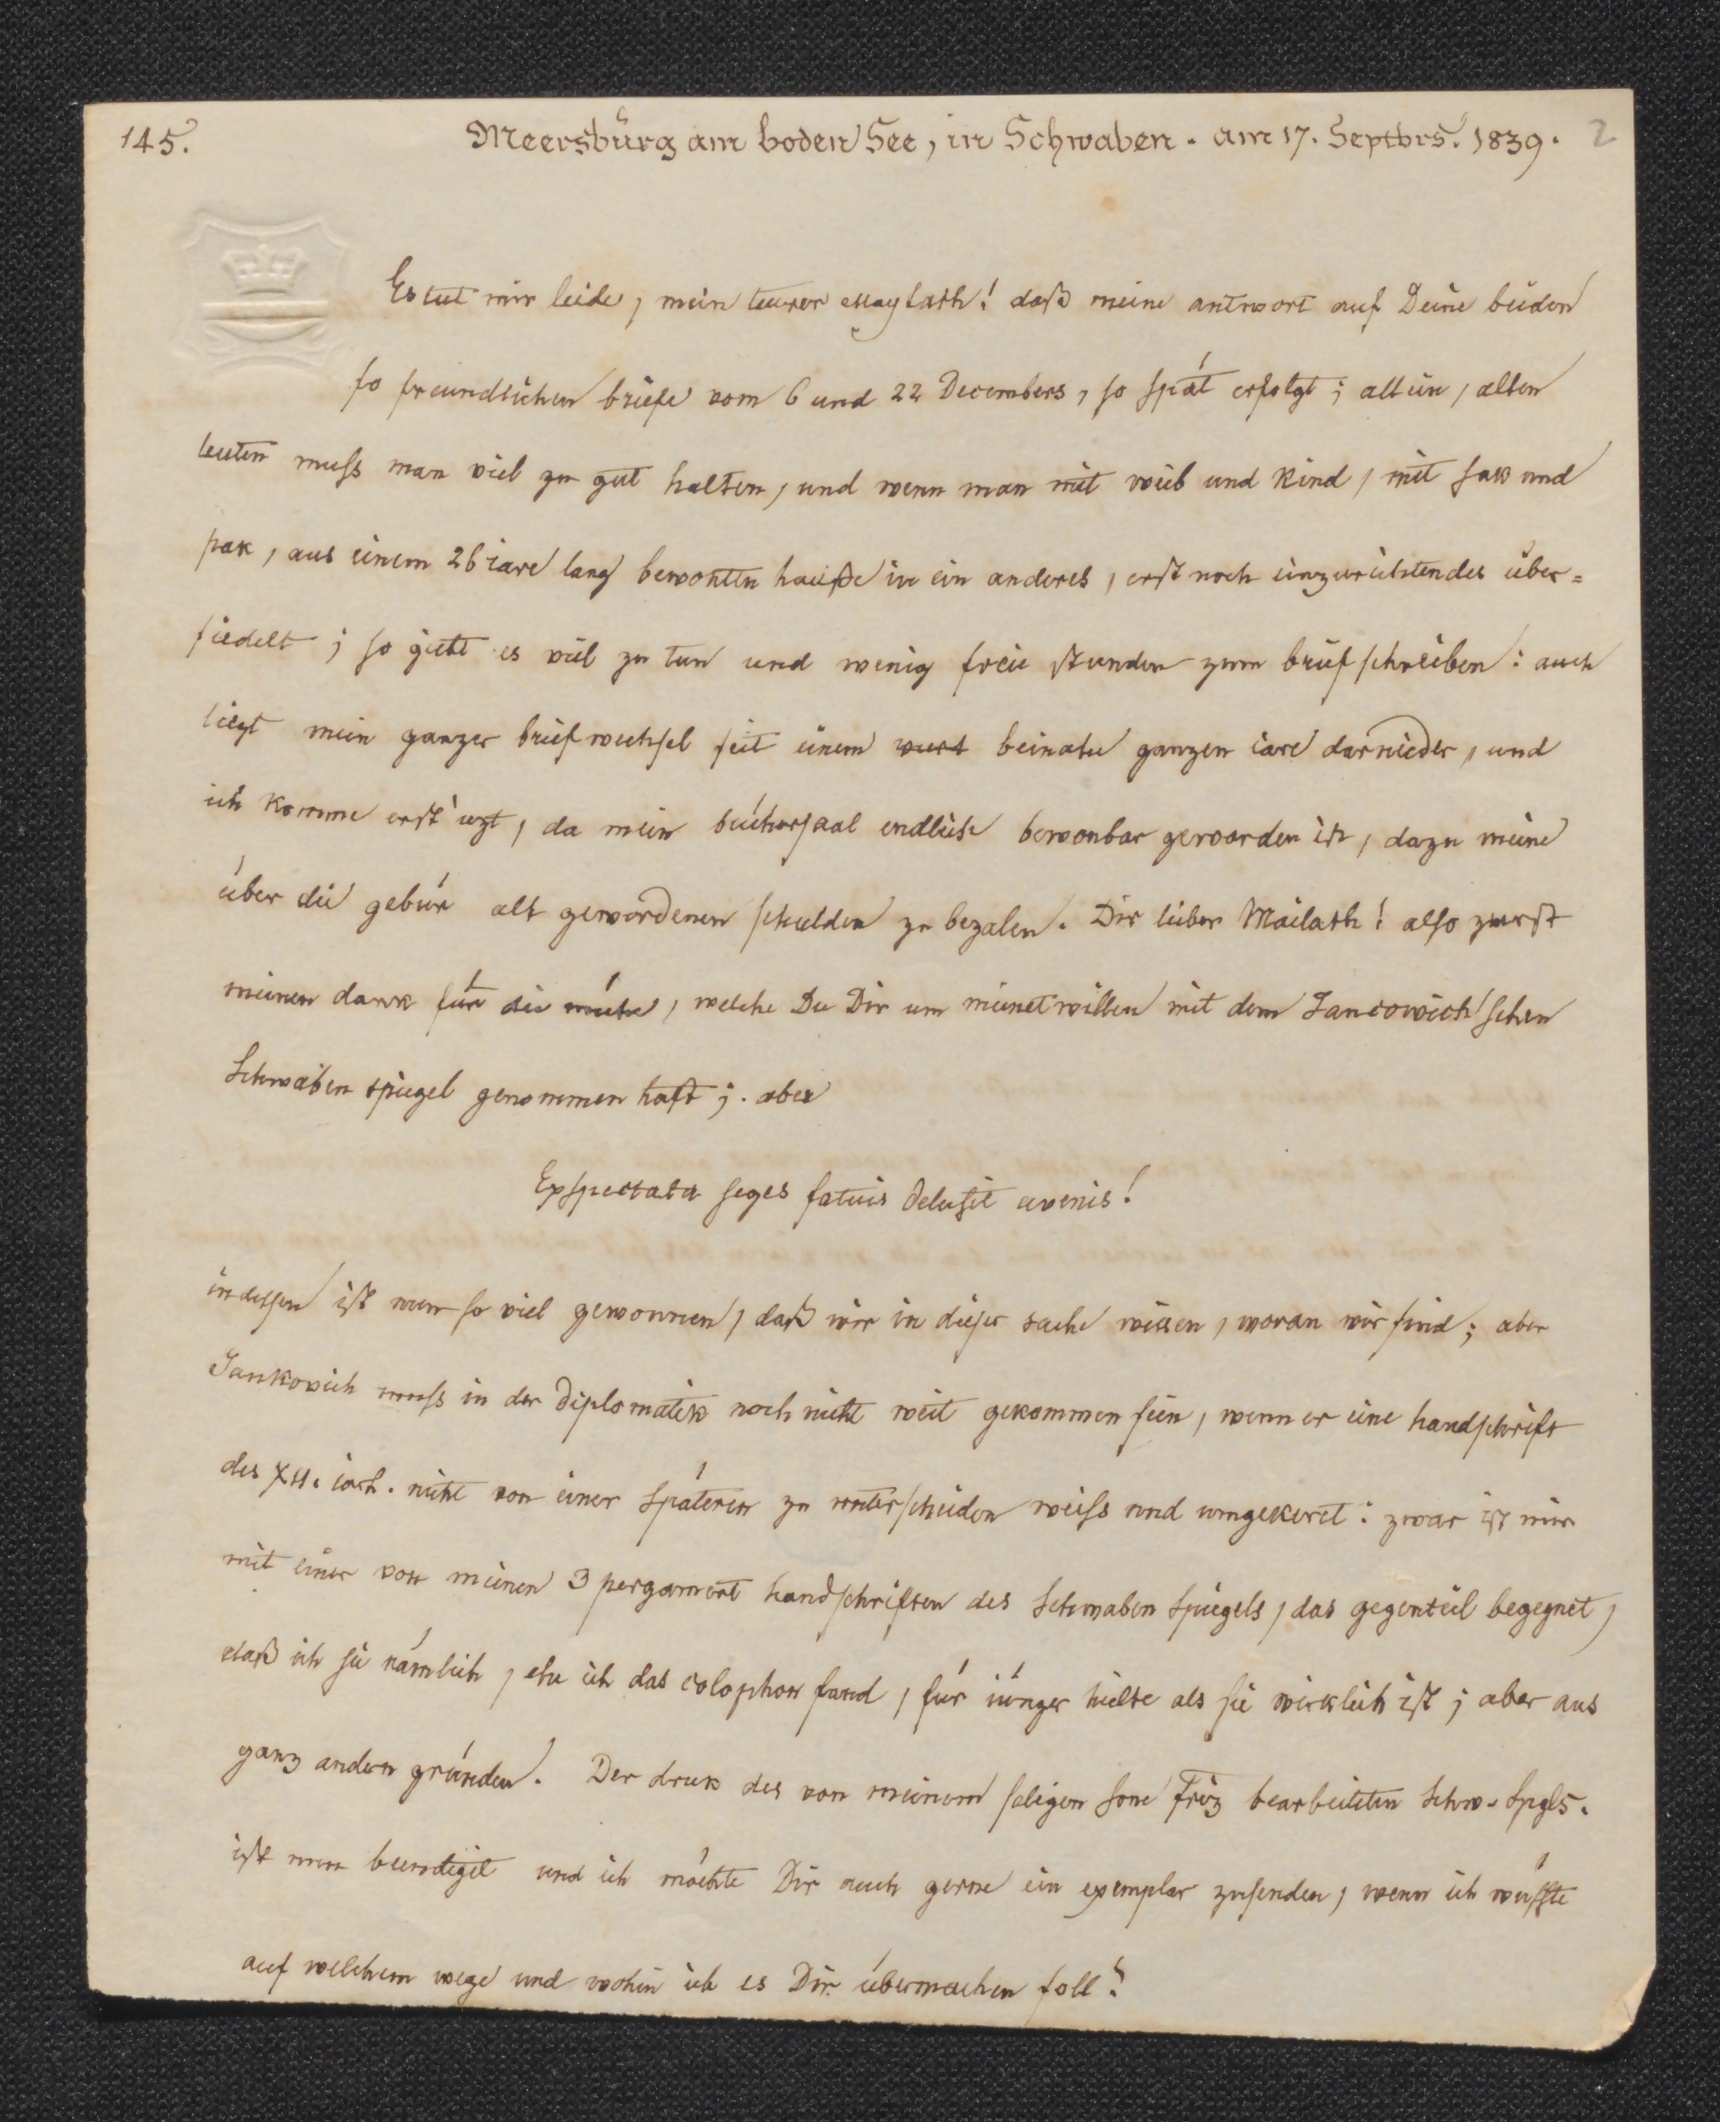 145. Meersbůrg am boden See, in Schwaben. am 17. Septbrs. 1839. 2
Es tut mir leide, mein teurer Maylath! daß meine antwort auf Deine beiden
so freundlichen briefe vom 6 und 22 Decembers, so spät erfolgt; allein, alten
leuten muss man viel zu gut halten, und wenn man mit weib und kind, mit sak und
pak, aus einem 26 iare lang bewonten hauße in ein anderes, erst noch einzurichtendes über-
siedelt; so giebt es viel zu tun und wenig freie stunden zum briefschreiben: auch
liegt mein ganzer briefwechsel seit einem beinahe ganzen iare darnieder, und
ich komme erst iezt, da mein büchersaal endlich bewonbar geworden ist, dazu meine
über die gebür alt gewordenen schulden zu bezalen. Dir lieber Mailath! also zuerst
meinen dank für die mühe, welche Du Dir um meinetwillen mit dem Jancowich'schen
Schwabenspiegel genommen hast; aber
Exspectata seges fatuis delusit avenis!
indessen ist nun so viel gewonnen, daß wir in dieser sache wissen, woran wir sind; aber
Jankovich muss in der Diplomatik noch nicht weit gekommen sein, wenn er eine handschrift
des XII. iarh. nicht von einer späteren zu unterscheiden weiss und umgekeret: zwar ist mir
mit einer von meinen 3 pergament handschriften des Schwaben Spiegels, das gegenteil begegnet,
daß ich sie nämlich, ehe ich das colophon fand, für iünger hielte als sie wirklich ist; aber aus
ganz andern gründen. Der druk des von meinem seligen sone Friz bearbeiteten Schw. Spgls.
ist nun beendiget und ich möchte Dir auch gerne ein exemplar zusenden, wenn ich wüsste
auf welchem wege und wohin ich es Dir übermachen soll?